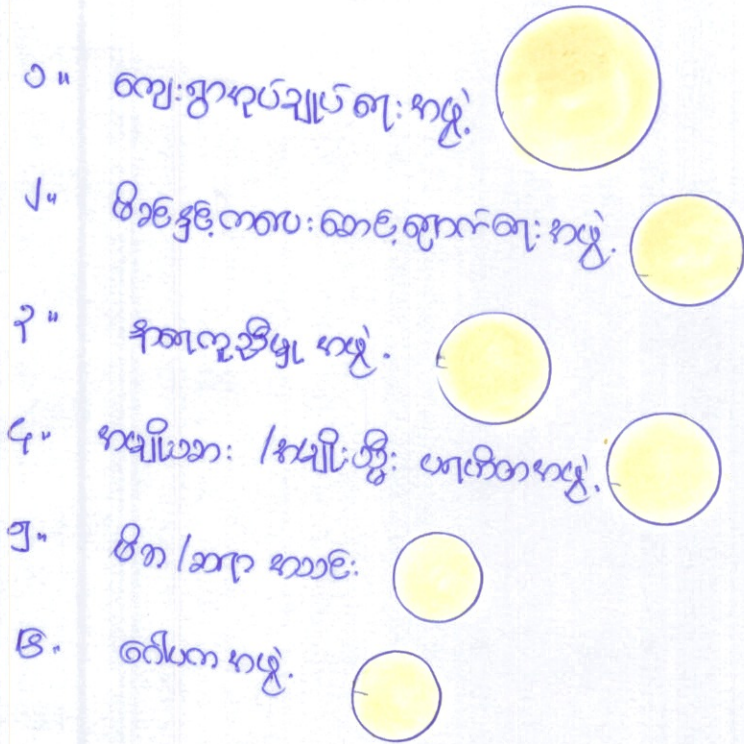 ၁။ ကျေးရွာအုပ်ချုပ်ရေးအဖွဲ့
၂။ မိခင်နှင့်ကလေးစောင့်ရှောက်ရေးအဖွဲ့.
၃။ နာရေးကူညီမှု အဖွဲ့.
၄။ အမျိုးသား /အမျိုးသ္မီး ပရဟိတအဖွဲ့.
၅။ မိဘ/ဆရာ အသင်း
၆. ဂေါပက အဖွဲ့.